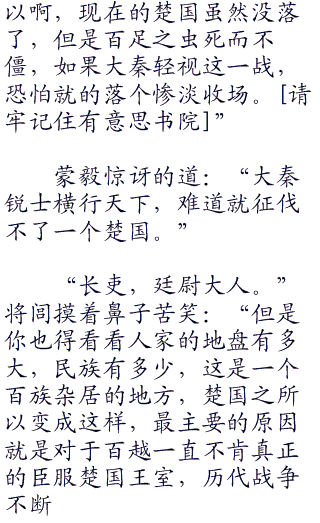 以啊，现在的楚国虽然没落
了，但是百足之虫死而不
僵，如果大秦轻视这一战，
恐怕就的落个惨淡收场。[请
牢记住有意思书院]”
蒙毅惊讶的道：“大秦
锐士横行天下，难道就征伐
不了一个楚国。”
“长吏，廷尉大人。”
将闾摸着鼻子苦笑：“但是
你也得看看人家的地盘有多
大，民族有多少，这是一个
百族杂居的地方，楚国之所
以变成这样，最主要的原因
就是对于百越一直不肯真正
的臣服楚国王室，历代战争
不断